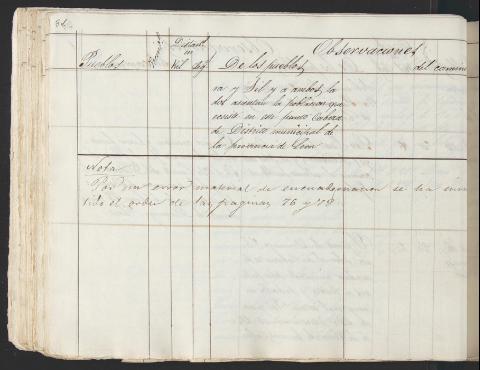 Observaciones
Pueblos
De los pueblos
del camino
ra y Sil y a ambos la
dos asentada la poblacion que
en un puente Cabeza
de Distrito municipal de
la provincia de Leon
Nota
Por un error material de encuadernacion se ha inver
tido el orden de las paginas 76 y 78